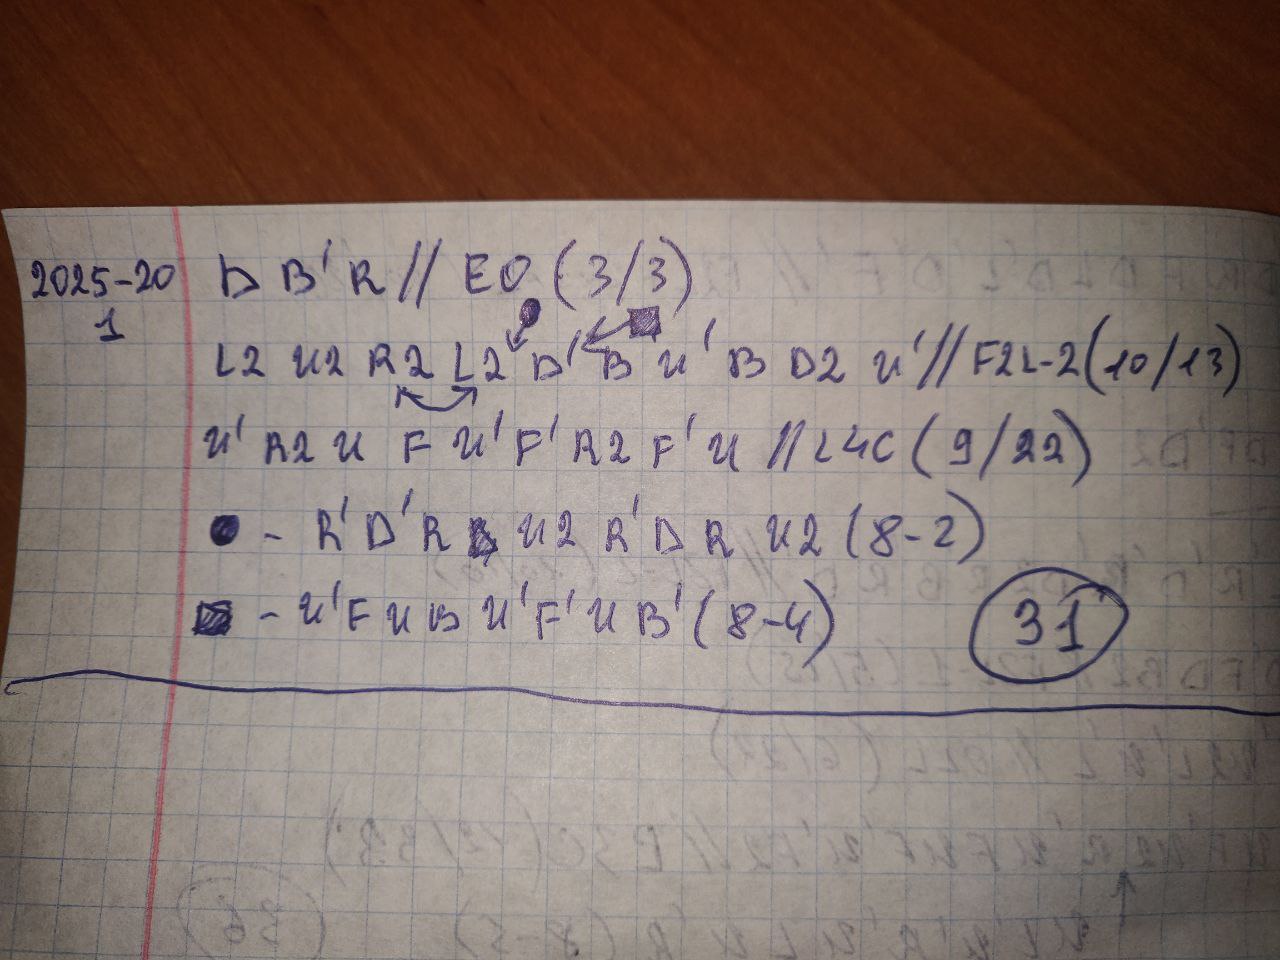 2025-20 D B' R // EO (3/3)
1
L2 U2 R2 L2 D' B U' B D2 U' // F2L-2 (10/13)
U' R2 U F U' F' R2 F' U // L4C (9/22)
● - R' D' R U2 R' D R U2 (8-2)
■ - U' F U B U' F' U B' (8-4) 31